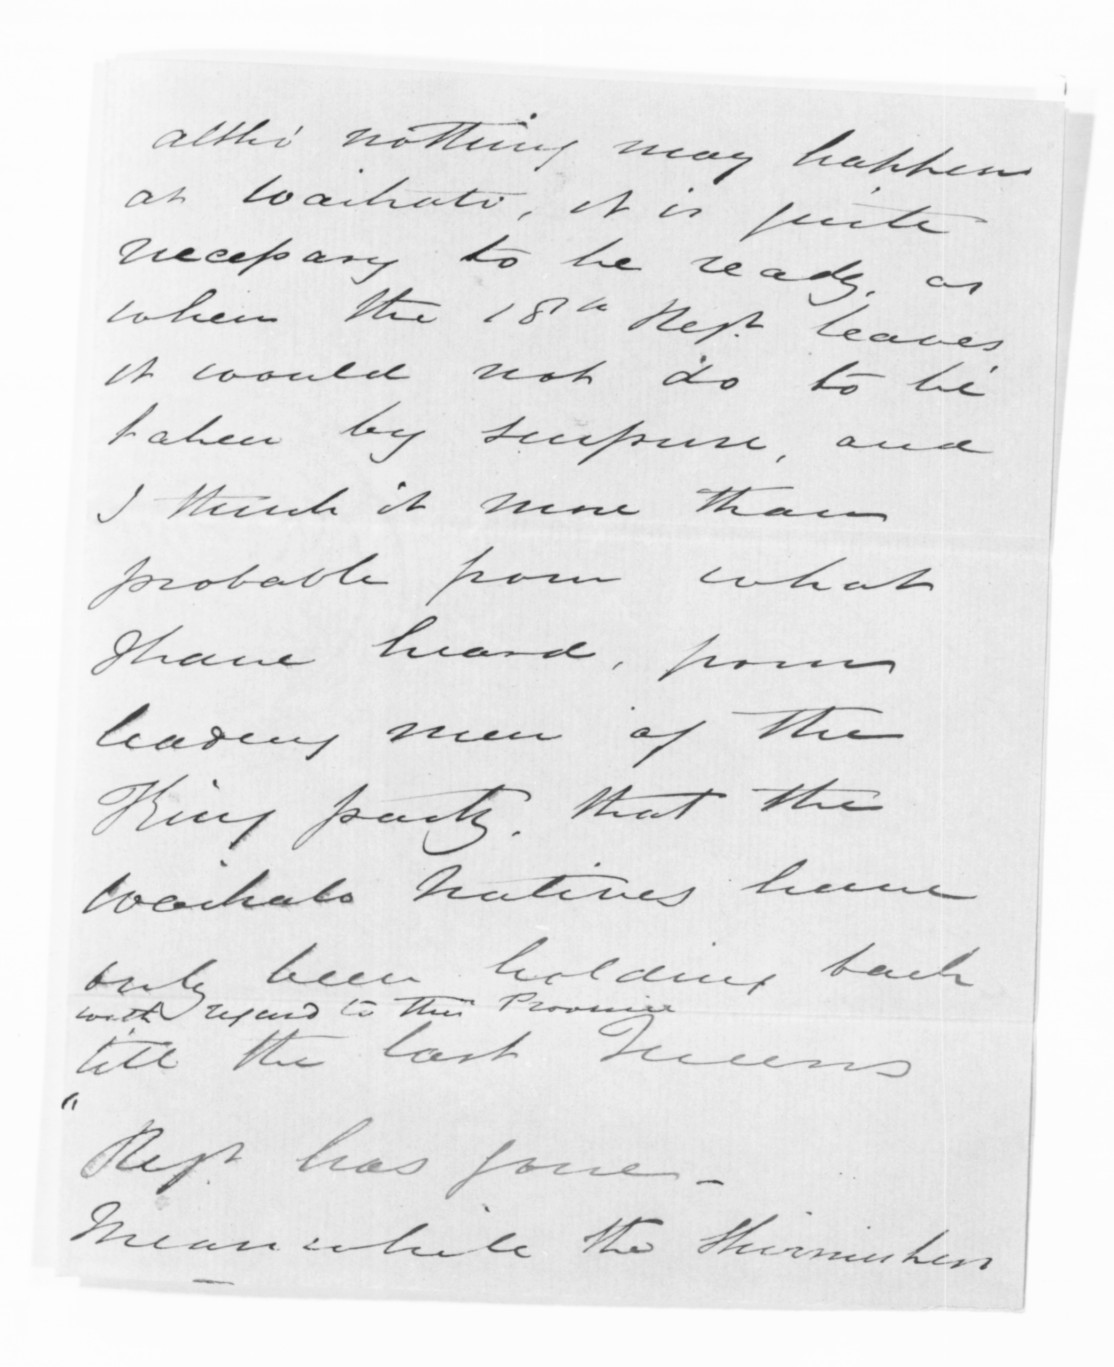 altho' nothing may happen
at Waikato, it is quite
necessary to be ready, as
when the 18th Regt. leaves
it would not do to be
taken by surprise, and
I think it more than
probable from what
I have heard, from
leading men of the
King party, that the
Waikato Natives have
only been holding back
with regard to this Province
till the last Queens
Regt. has gone –
Meanwhile the Skirmishers